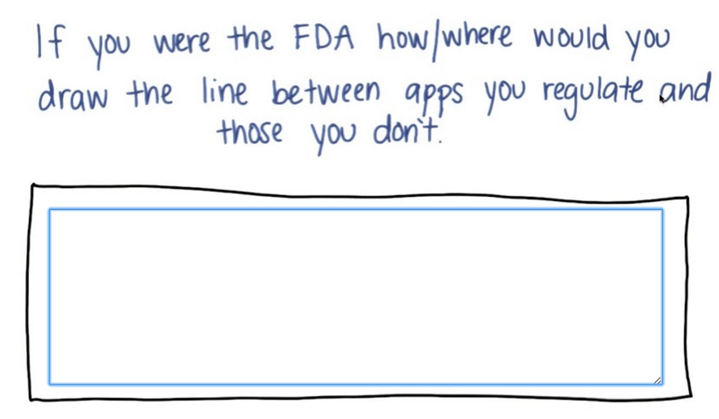 If you were the FDA how/where would you
draw the line between apps you regulate and
those you don't.